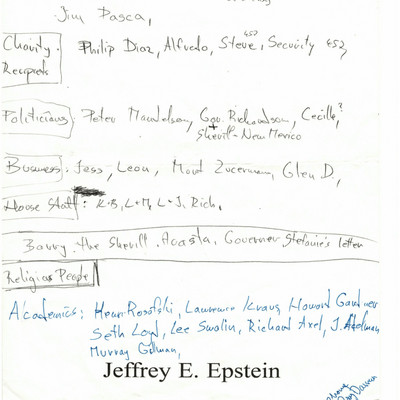 Jim Pasca,
Charity Recipients Philip Diaz, Alfredo, Steve, 452 Security 452,
Politicians Peter Mandelson, Gov. Richardson, Cecilie?
+ Sheriff - New Mexico
Business: Jess, Leon, Mort Zucerman, Glen D.,
House Staff: K+B, L+M, L+J, Rich,
Barry the Sheriff. Acasta, Governer, Stefanie's letter
Religios People
Academics: Henri Rosofski, Lawrence Kraus, Howard Gardner
Seth Loyd, Lee Smolin, Richard Axel, J. Adelman
Murray Gillman,
Jeffrey E. Epstein